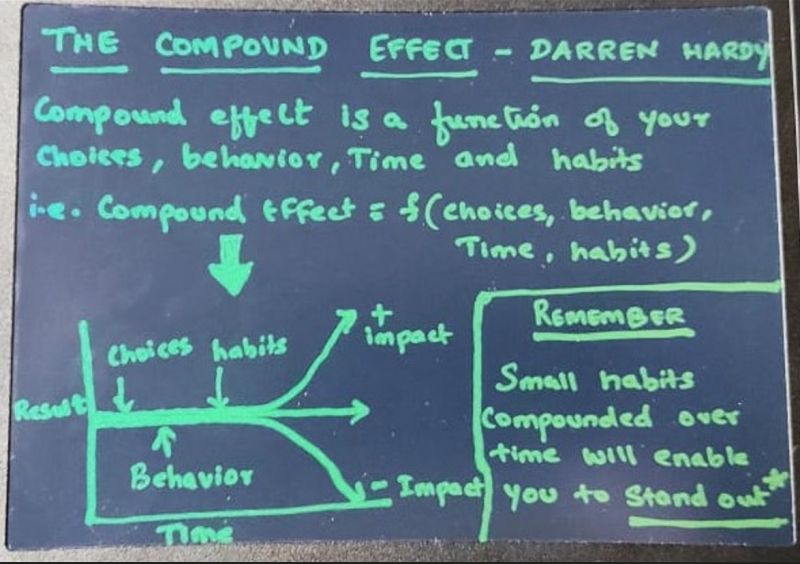 THE COMPOUND EFFECT - DARREN HARDY
Compound effect is a function of your
choices, behavior, Time and habits
i.e. Compound Effect = f(choices, behavior,
Time, habits)
+
impact
choices habits
Result
Behavior
- Impact
Time
REMEMBER
Small habits
compounded over
time will enable
you to Stand out*